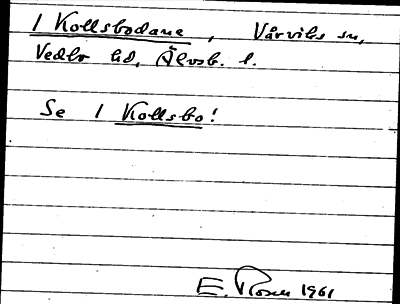 1 Kollsbodane, Vårviks sn,
Vedbo hd, Älvsb. l.
Se 1 Kollsbo!
E. Rosen 1961